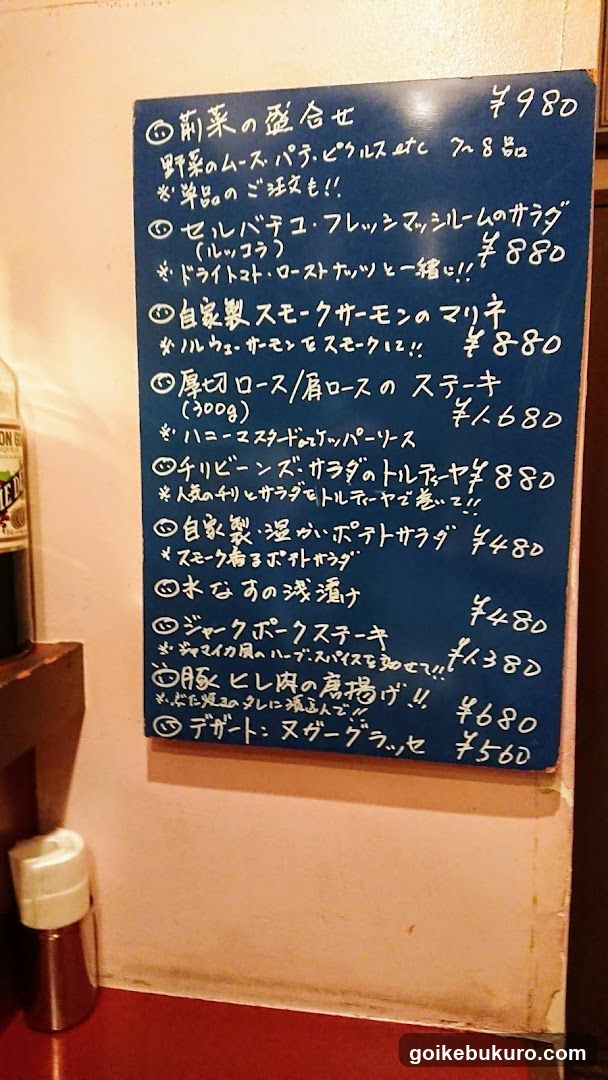 前菜の盛合せ ¥980
野菜のムース・パテ・ピクルス etc 7〜8品
※単品のご注文も!!
セルバチコ・フレッシュマッシュルームのサラダ
(ルッコラ) ¥880
※ドライトマト・ローストナッツと一緒に!!
自家製スモークサーモンのマリネ
※ノルウェーサーモンをスモークして!! ¥880
厚切ロース/肩ロースの ステーキ
(300g) ¥1,680
※ハニーマスタードorケッパーソース
チリビーンズ・サラダのトルティーヤ ¥880
※人気のチリとサラダをトルティーヤで巻いて!!
自家製・温かいポテトサラダ ¥480
※スモーク香るポテトサラダ
水なすの浅漬け ¥480
ジャークポークステーキ
※ジャマイカ風のハーブ・スパイスを効かせて!! ¥1,380
豚ヒレ肉の唐揚げ!!
※ぶた焼きのタレに漬込んで!! ¥680
デザート: ヌガーグラッセ ¥560
goikebukuro.com